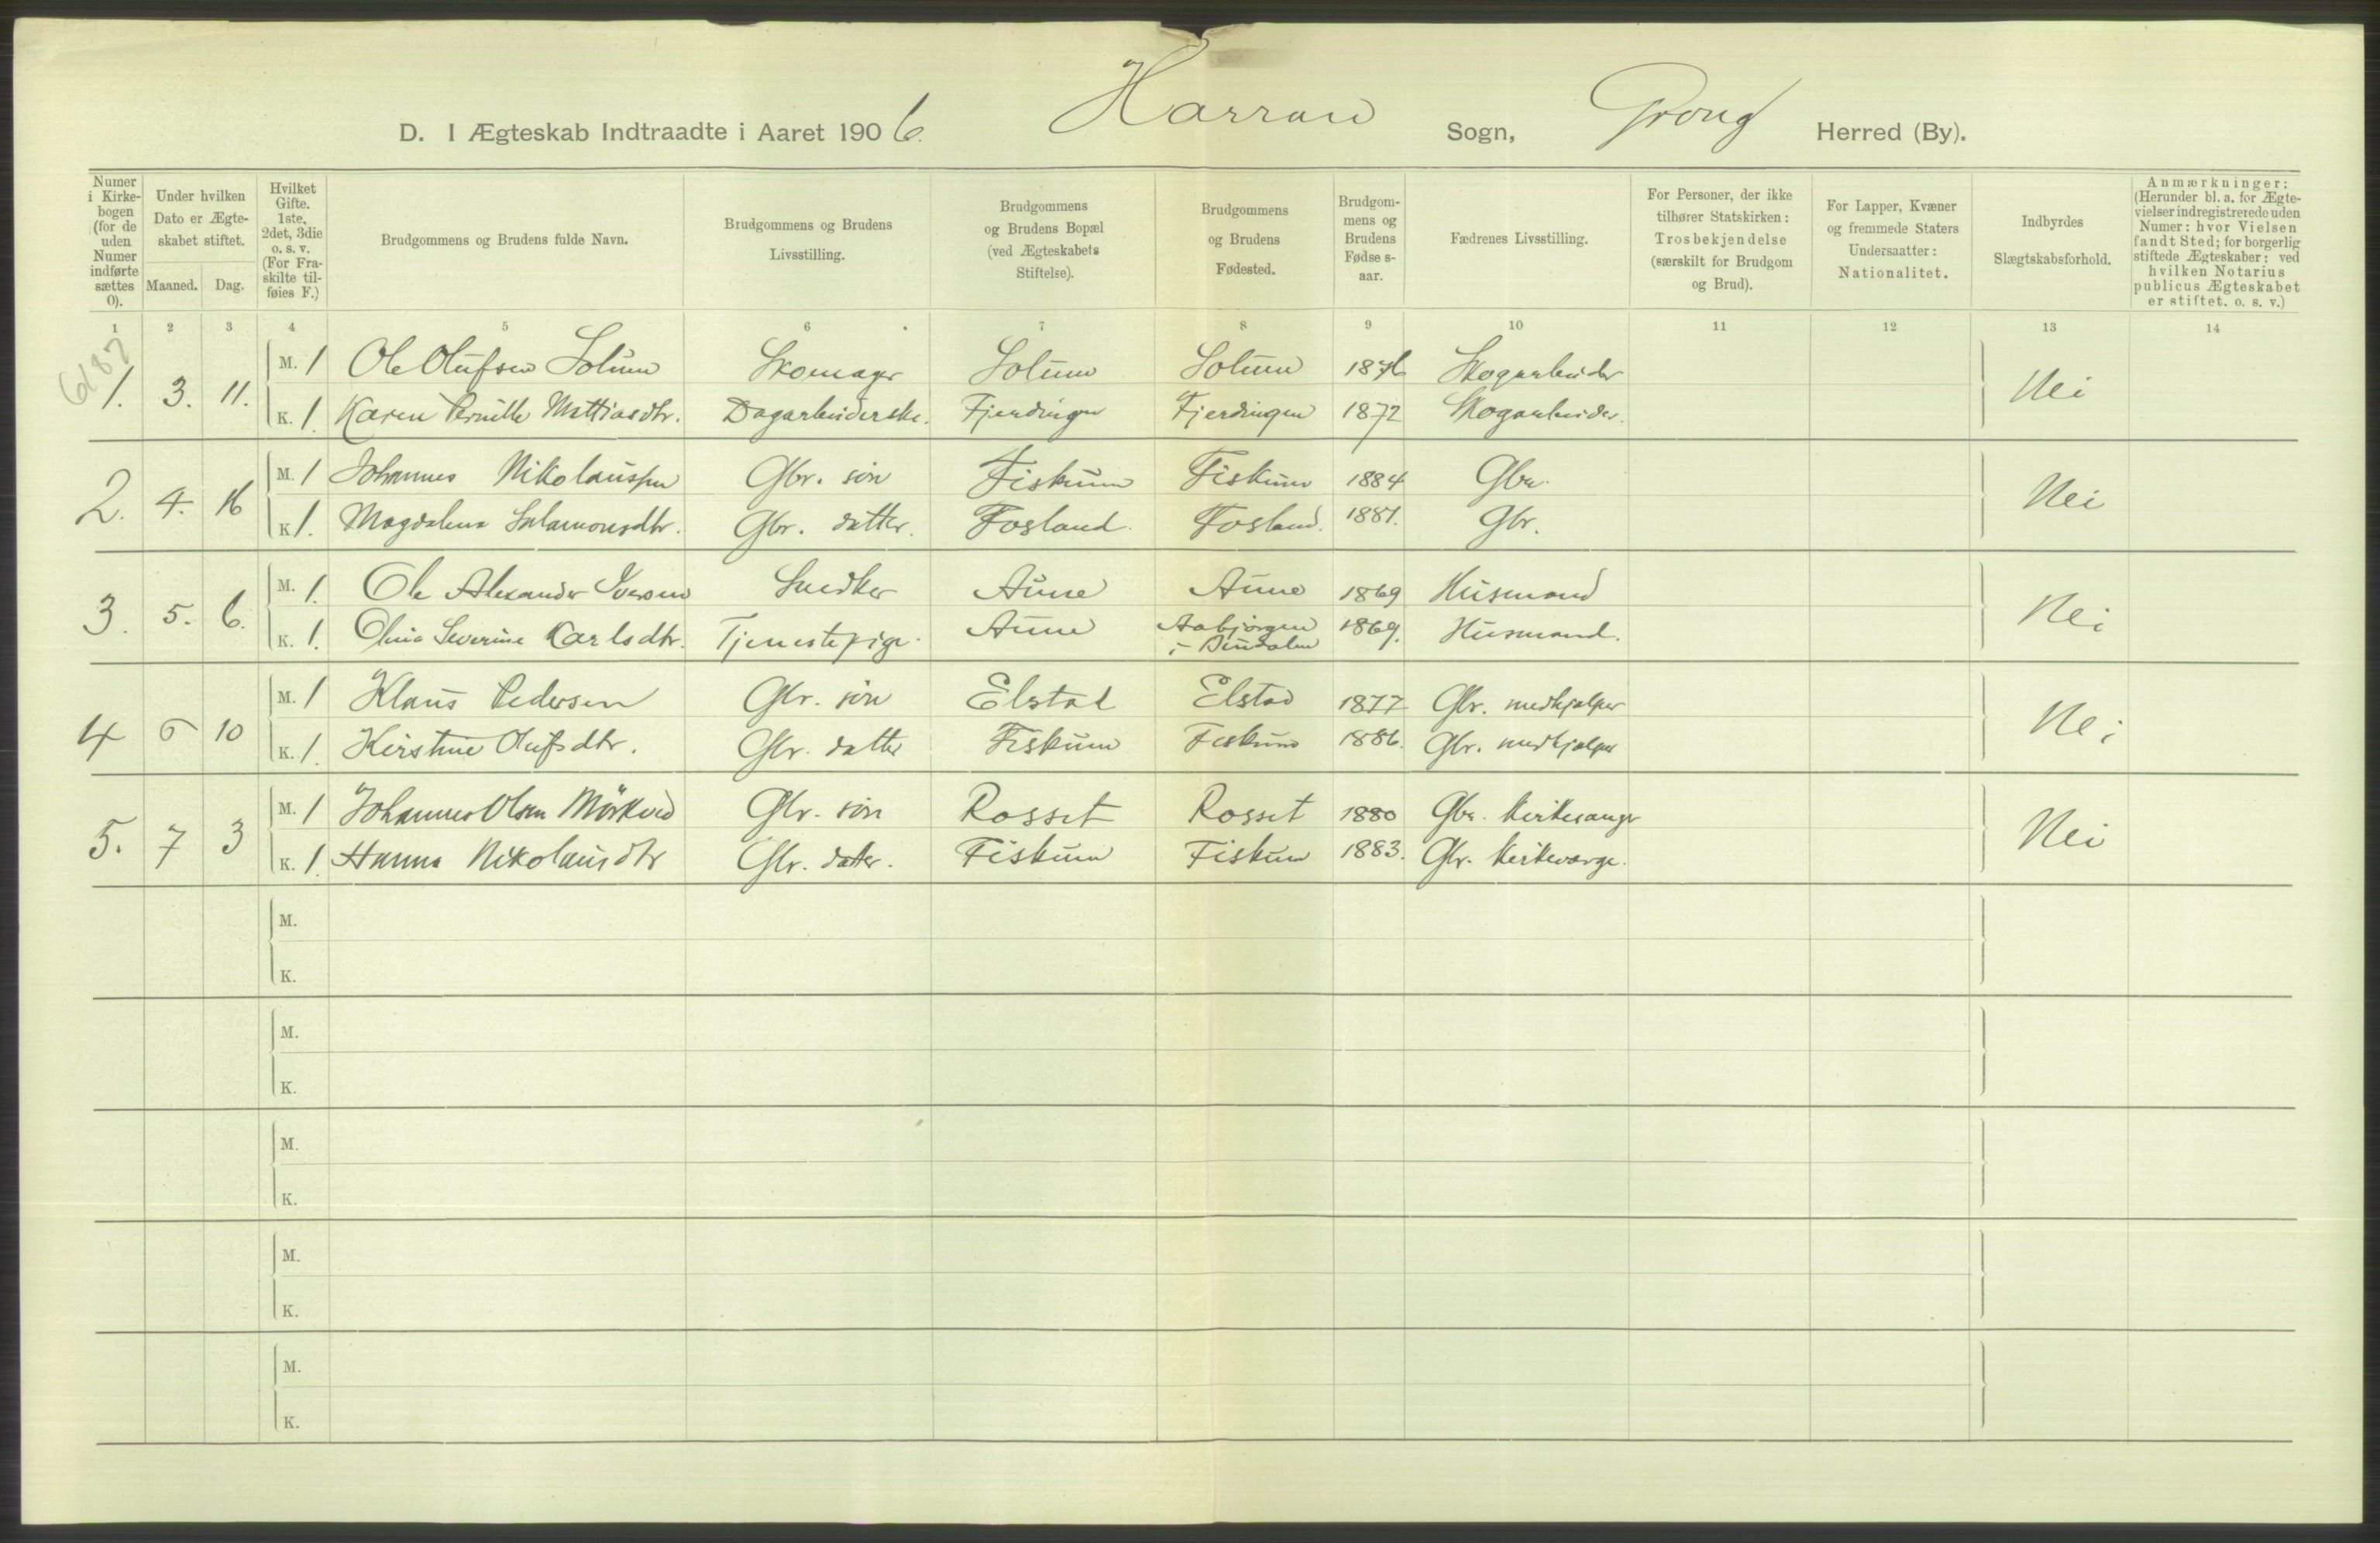 Harran Grong
D. I Ægteskab Indtraadte i Aaret 1906. Sogn, Herred (By).
Numer i Kirkebogen (for de uden Numer indførte sættes 0).
Under hvilken Dato er Ægteskabet stiftet.
Maaned. Dag.
Hvilket Gifte. 1ste, 2det, 3die o. s. v. (For Fraskilte tilføies F.)
Brudgommens og Brudens fulde Navn.
Brudgommens og Brudens Livsstilling.
Brudgommens og Brudens Bopæl (ved Ægteskabets Stiftelse).
Brudgommens og Brudens Fødested.
Brudgommens og Brudens Fødselsaar.
Fædrenes Livsstilling.
For Personer, der ikke tilhører Statskirken: Trosbekjendelse (særskilt for Brudgom og Brud).
For Lapper, Kvæner og fremmede Staters Undersaatter: Nationalitet.
Indbyrdes Slægtskabsforhold.
Anmærkninger: (Herunder bl. a. for Ægtevielser indregistrerede uden Numer: hvor Vielsen fandt Sted; for borgerlig stiftede Ægteskaber: ved hvilken Notarius publicus Ægteskabet er stiftet. o. s. v.)
1 2 3 4 5 6 7 8 9 10 11 12 13 14
6187
1. 3. 11. M. 1 Ole Olufsen Solum Skomager Solum Solum 1876 Skogarbeider Nei
K. 1. Karen Pernille Mattiasdtr. Dagarbeiderske. Fjerdingen Fjerdingen 1872 Skogarbeider.
2. 4. 16 M. 1 Johannes Nikolaussen Gbr. søn Fiskum Fiskum 1884 Gbr. Nei
K. 1. Magdalena Salamonsdtr. Gbr. datter. Fosland. Fosland. 1881. Gbr.
3. 5. 6. M. 1. Ole Alexander Iversen Snedker Aune Aune 1869 Husmand Nei
K. 1. Olina Severine Karlsdtr. Tjenestepige. Aune Aabjørgen i Bindalen 1869. Husmand.
4 6 10 M. 1 Klaus Pedersen Gbr. søn Elstad Elstad 1877 Gbr. medhjælper Nei
K. 1. Kirstine Olufsdtr. Gbr. datter Fiskum Fiskum 1886. Gbr. medhjælper
5. 7 3 M. 1 Johannes Olsen Mörkved Gbr. søn Rosset Rosset 1880 Gbr. Kirkesanger Nei
K. 1. Hanna Nikolausdtr Gbr. datter. Fiskum Fiskum 1883. Gbr. Kirkeværge.
M.
K.
M.
K.
M.
K.
M.
K.
M.
K.